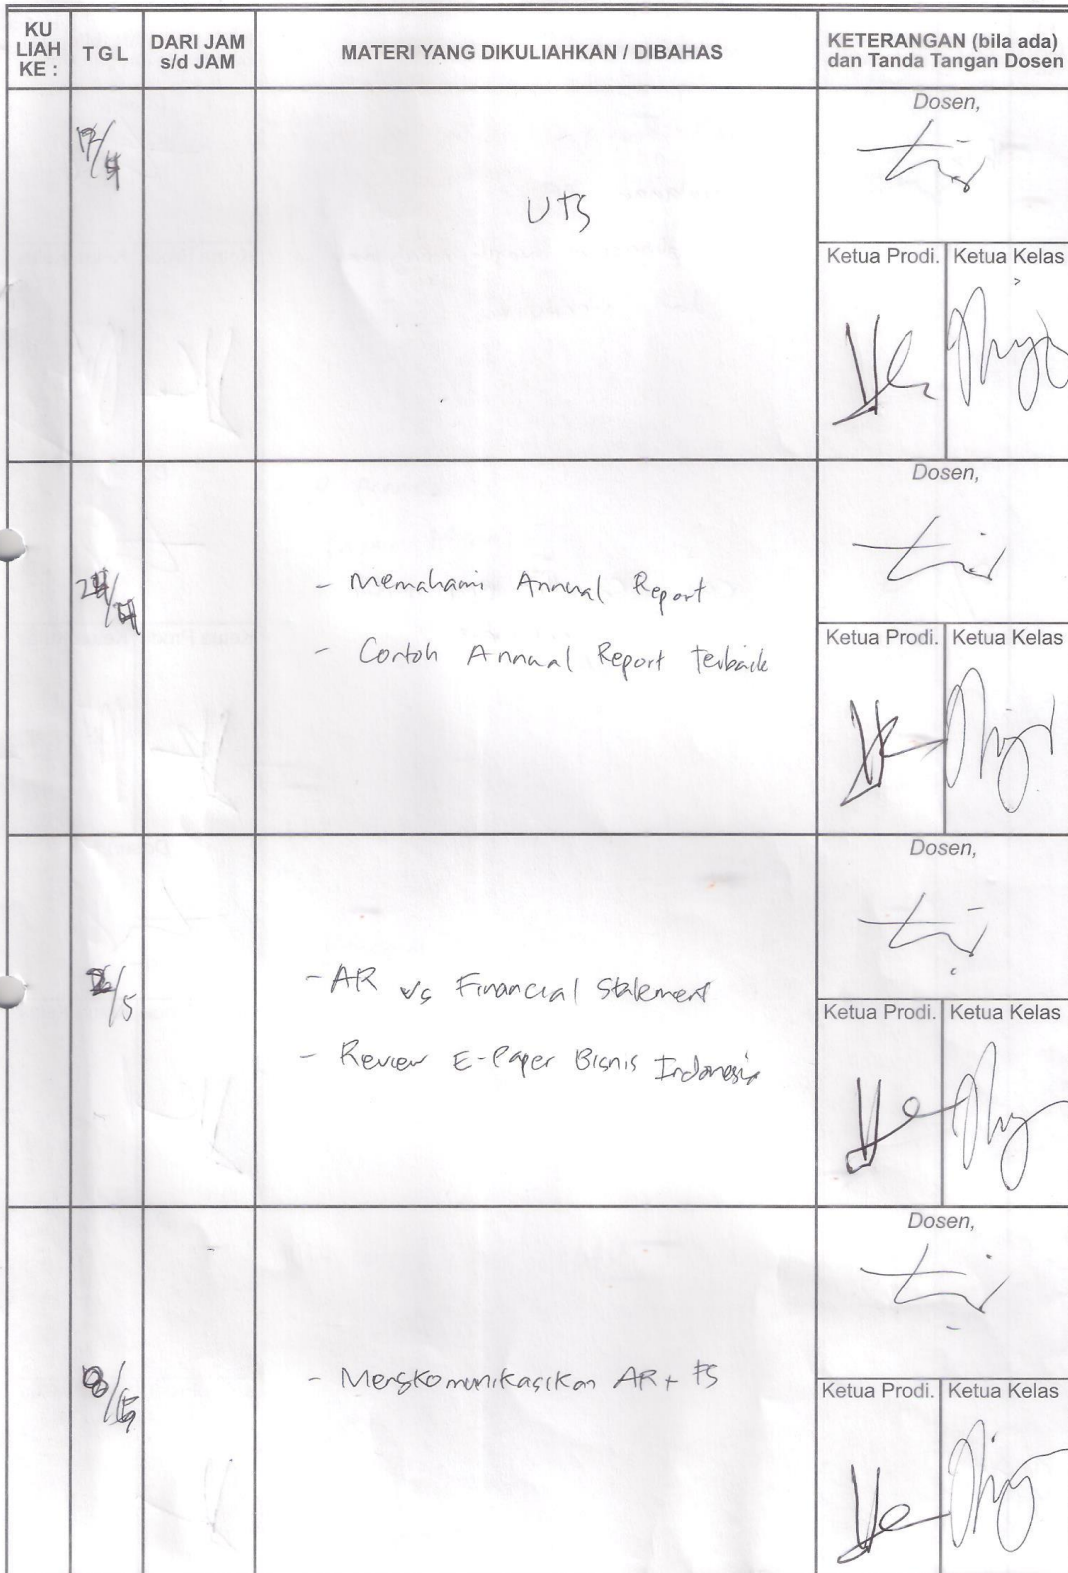 KU
LIAH
KE :
TGL
DARI JAM
s/d JAM
MATERI YANG DIKULIAHKAN / DIBAHAS
KETERANGAN (bila ada)
dan Tanda Tangan Dosen
Dosen,
UTS
Ketua Prodi.
Ketua Kelas
Dosen,
- Memahami Annual Report
- Contoh Annual Report terbaik
Ketua Prodi.
Ketua Kelas
Dosen,
- AR vs Financial Statement
- Review E-Paper Bisnis Indonesia
Ketua Prodi.
Ketua Kelas
Dosen,
- Mengkomunikasikan AR + FS
Ketua Prodi.
Ketua Kelas